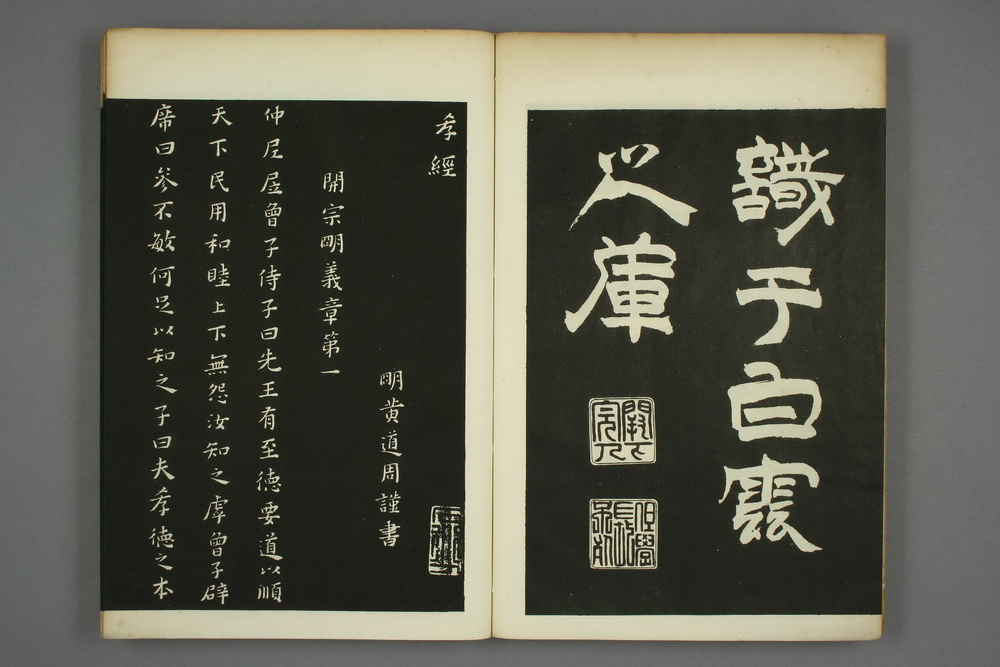 識于白
庫
孝經
明黄道周謹書
開宗明義章第一
仲尼凥曾子侍子曰先王有至德要道以順
天下民用和睦上下無怨汝知之虖曾子辟
席曰參不敏何足以知之子曰夫孝德之本